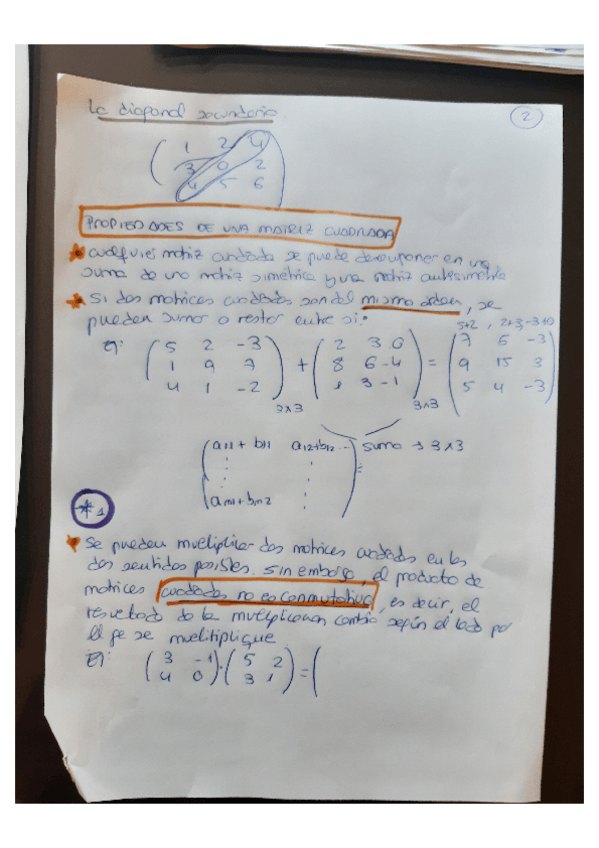 La diagonal secundaria
2
1 2 4
3 0 2
4 5 6
PROPIEDADES DE UNA MATRIZ CUADRADA
cualquier matriz cuadrada se puede descomponer en una
suma de una matriz simétrica y una matriz antisimétrica
Si dos matrices cuadradas son del mismo orden, se
pueden sumar o restar entre sí:
5+2, 2+3, -3+0
ej: ( 5 2 -3 ) + ( 2 3 0 ) = ( 7 5 -3 )
( 1 9 7 ) ( 8 6 -4 ) ( 9 15 3 )
( 4 1 -2 ) 3x3 ( 1 3 -1 ) 3x3 ( 5 4 -3 )
( a11 + b11 a12+b12 ... ) = suma → 3x3
*1
Se pueden multiplicar dos matrices cuadradas en los
dos sentidos posibles. Sin embargo, el producto de
matrices cuadradas no es conmutativo, es decir, el
resultado de la multiplicación cambia según el lado por
el que se multiplique
ej: ( 3 -1 ) · ( 5 2 ) = (
( 4 0 ) ( 3 1 )